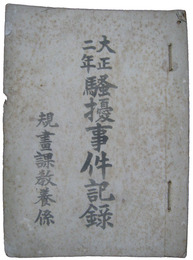 大正二年
騷擾事件記錄
規畫課教養係